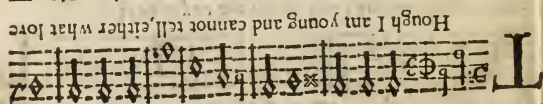 T
Hough I am young and cannot tell, either what love